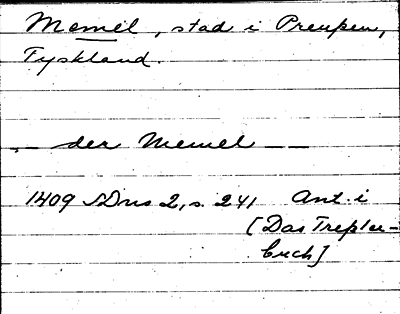 Memel, stad i Preussen,
Tyskland.
— der Memel —
1409 SDns 2, s. 241 Ant. i
[Das Tresler-
buch]